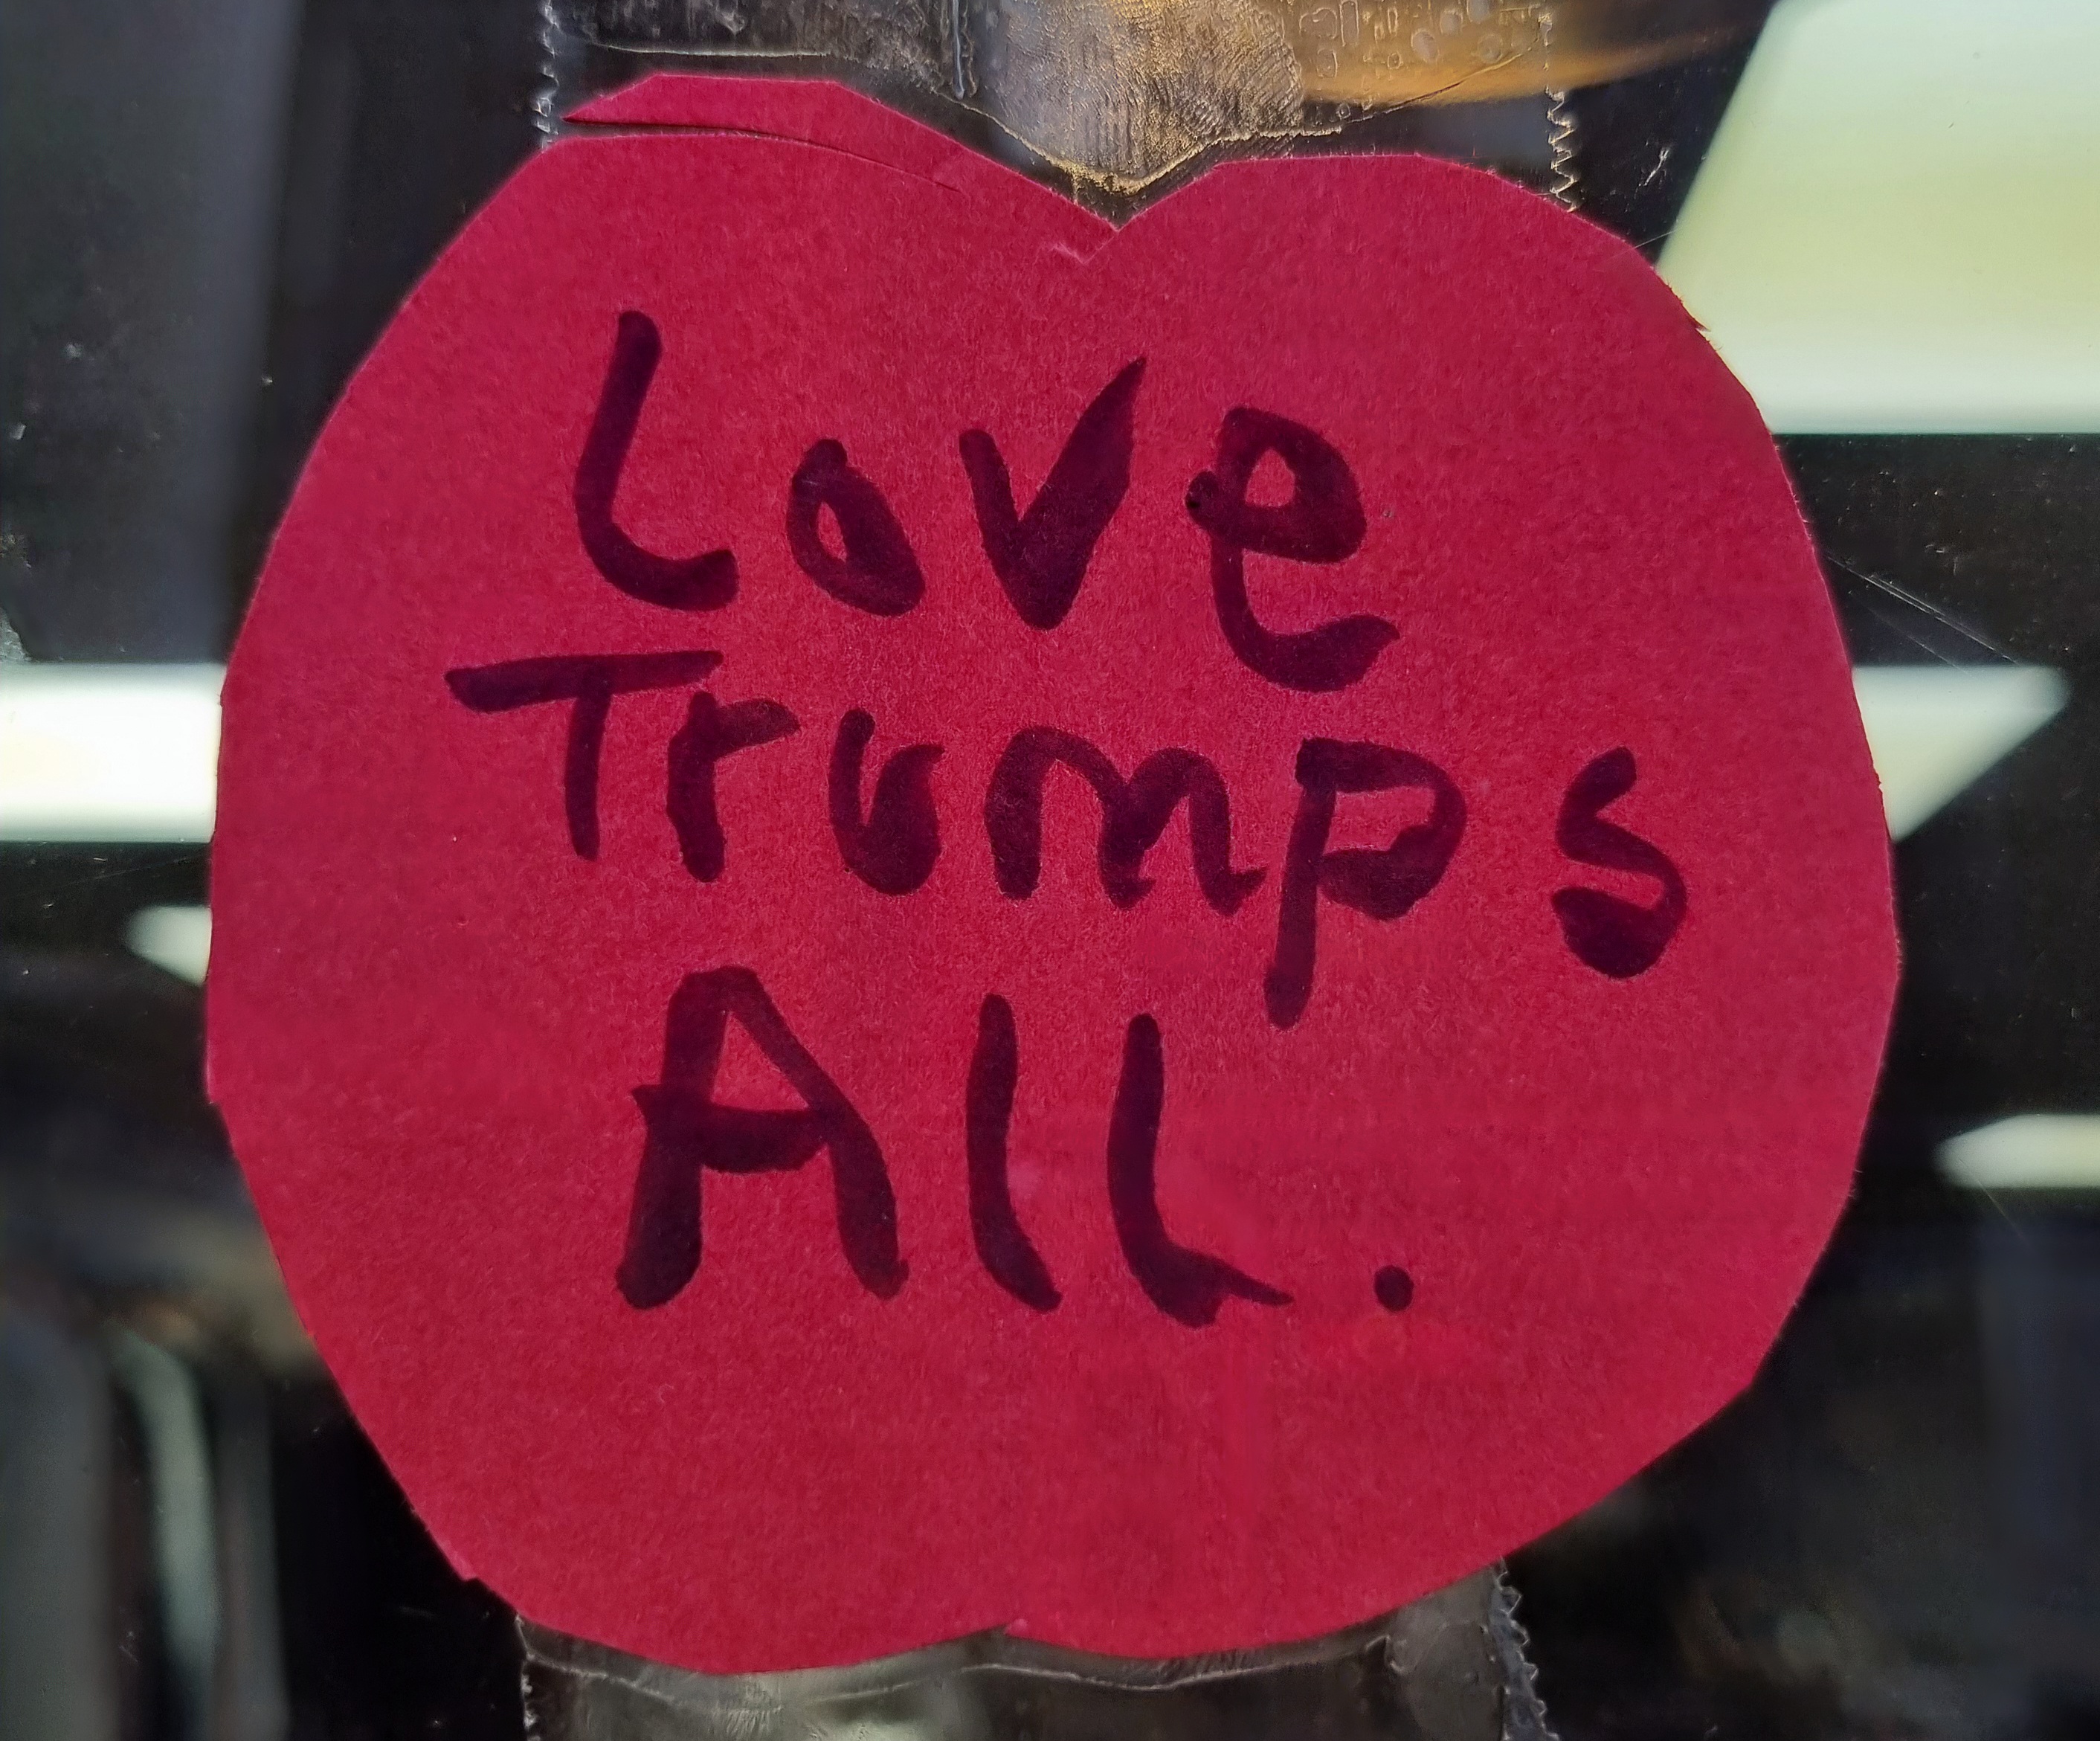 Love
Trumps
All.